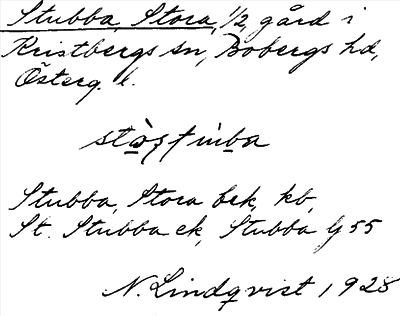 Stubba, Stora, 1/2, gård i
Kristbergs sn, Bobergs hd,
Österg. l.
Stubba, Stora bek, kb,
St. Stubba ek, Stubba G 55
N. Lindqvist 1928